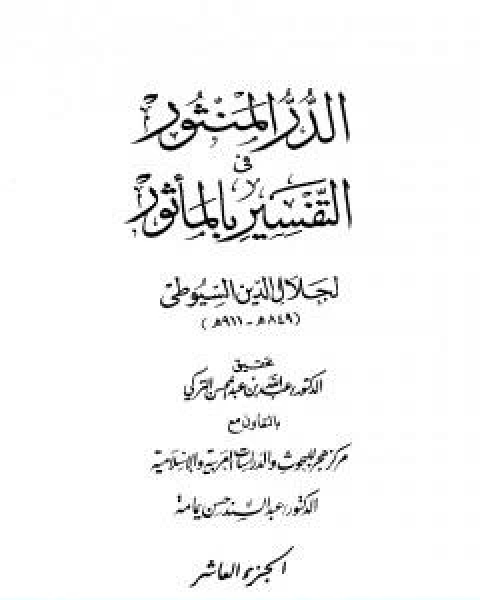 الدُّرُّ المَنْثُور
في
التَّفْسِيرِ بِالمَأْثُور
لجلال الدين السيوطي
(٨٤٩هـ - ٩١١هـ)
تحقيق
الدكتور عبد الله بن عبد المحسن التركي
بالتعاون مع
مركز هجر للبحوث والدراسات العربية والإسلامية
الدكتور عبد السند حسن يمامة
الجزء العاشر